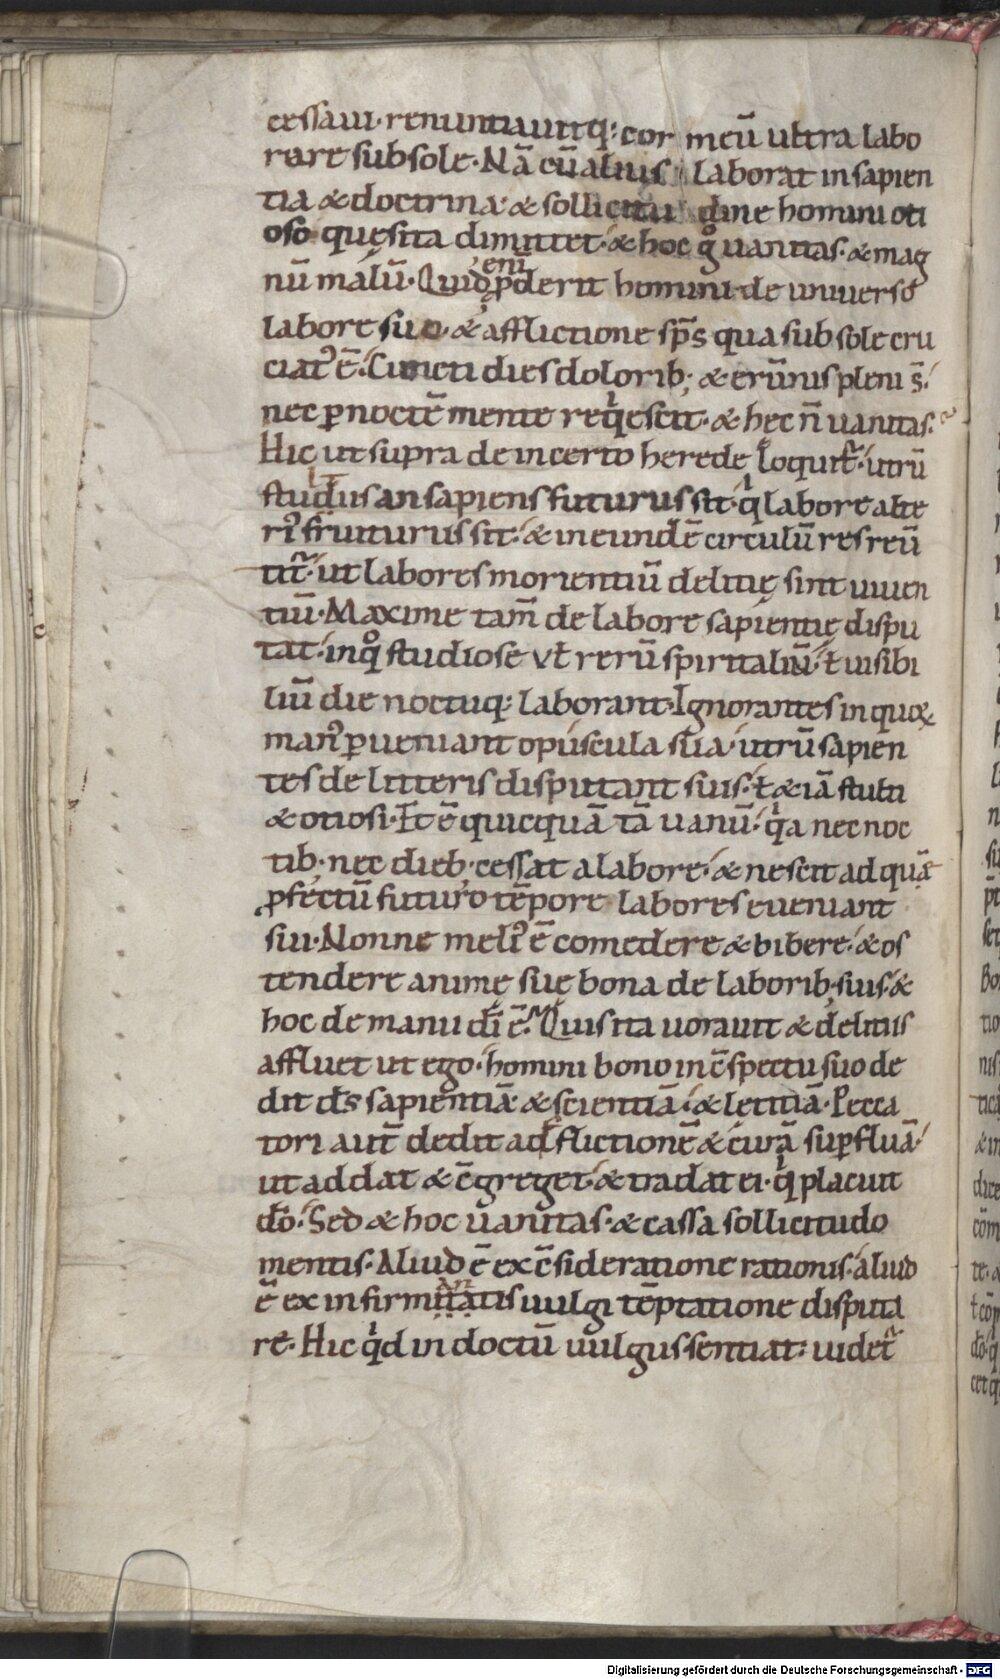 cessaui· renuntiauitq; cor meū ultra labo
rare sub sole· Nā cū alius laborat in sapien
tia & doctrina· & sollicitudine homini oti
oso quęsita dimittet· & hoc gͦ uanitas· & mag
nū malū· Quid enī ꝓderit homini de uniuerso
labore suo· & afflictione sp̄s qua sub sole cru
ciatꝰ ē· Cuncti dies dolorib; & erūnis pleni s̄·
nec ꝑ noctē mente reqͥescit· & hec n̄ uanitas·
Hic ut supra de incerto herede loquit᷑· utrū
studiusan sapiens futurus sit· qͥ labore alte
riꝰ fruiturus sit· & in eundē circulū res reū
tit᷑· ut labores morientiū delitię sint uiuen
tiū· Maxime tam̄ de labore sapientię dispu
tat· in qͦ studiose vł rerū spiritaliū· ł uisibi
liū die noctuq; laborant· Ignorantes in quoꝝ
manꝰ ꝑueniant opuscula sua· utrū sapien
tes de litteris disputant suis· ł & iā stulti
& otiosi· Et ē quicquā tā uanū· qͥa nec noc
tib; nec dieb; cessat a labore· & nescit ad quā
ꝓfectū futuro tēpore labores eueniant
sui· Nonne meliꝰ ē comedere & bibere· & os
tendere animę suę bona de laborib; suis· &
hoc de manu dī ē· Quis ita uorauit & delitiis
affluet ut ego· homini bono in c̄spectu suo de
dit d̄s sapientiā· & scientiā· & letitiā· Pecca
tori aut̄ dedit adflictionē & curā suꝑfluā·
ut addat & c̄greget· & tradat ei· qͥ placuit
dō· Sed & hoc uanitas· & cassa sollicitudo
mentis· Aliud ē ex c̄sideratione rationis· aliud
ē ex infirmitatis uulgi tēptatione disputa
re· Hic qͥd indoctū uulgus sentiat· uidet᷑
Digitalisierung gefördert durch die Deutsche Forschungsgemeinschaft - DFG